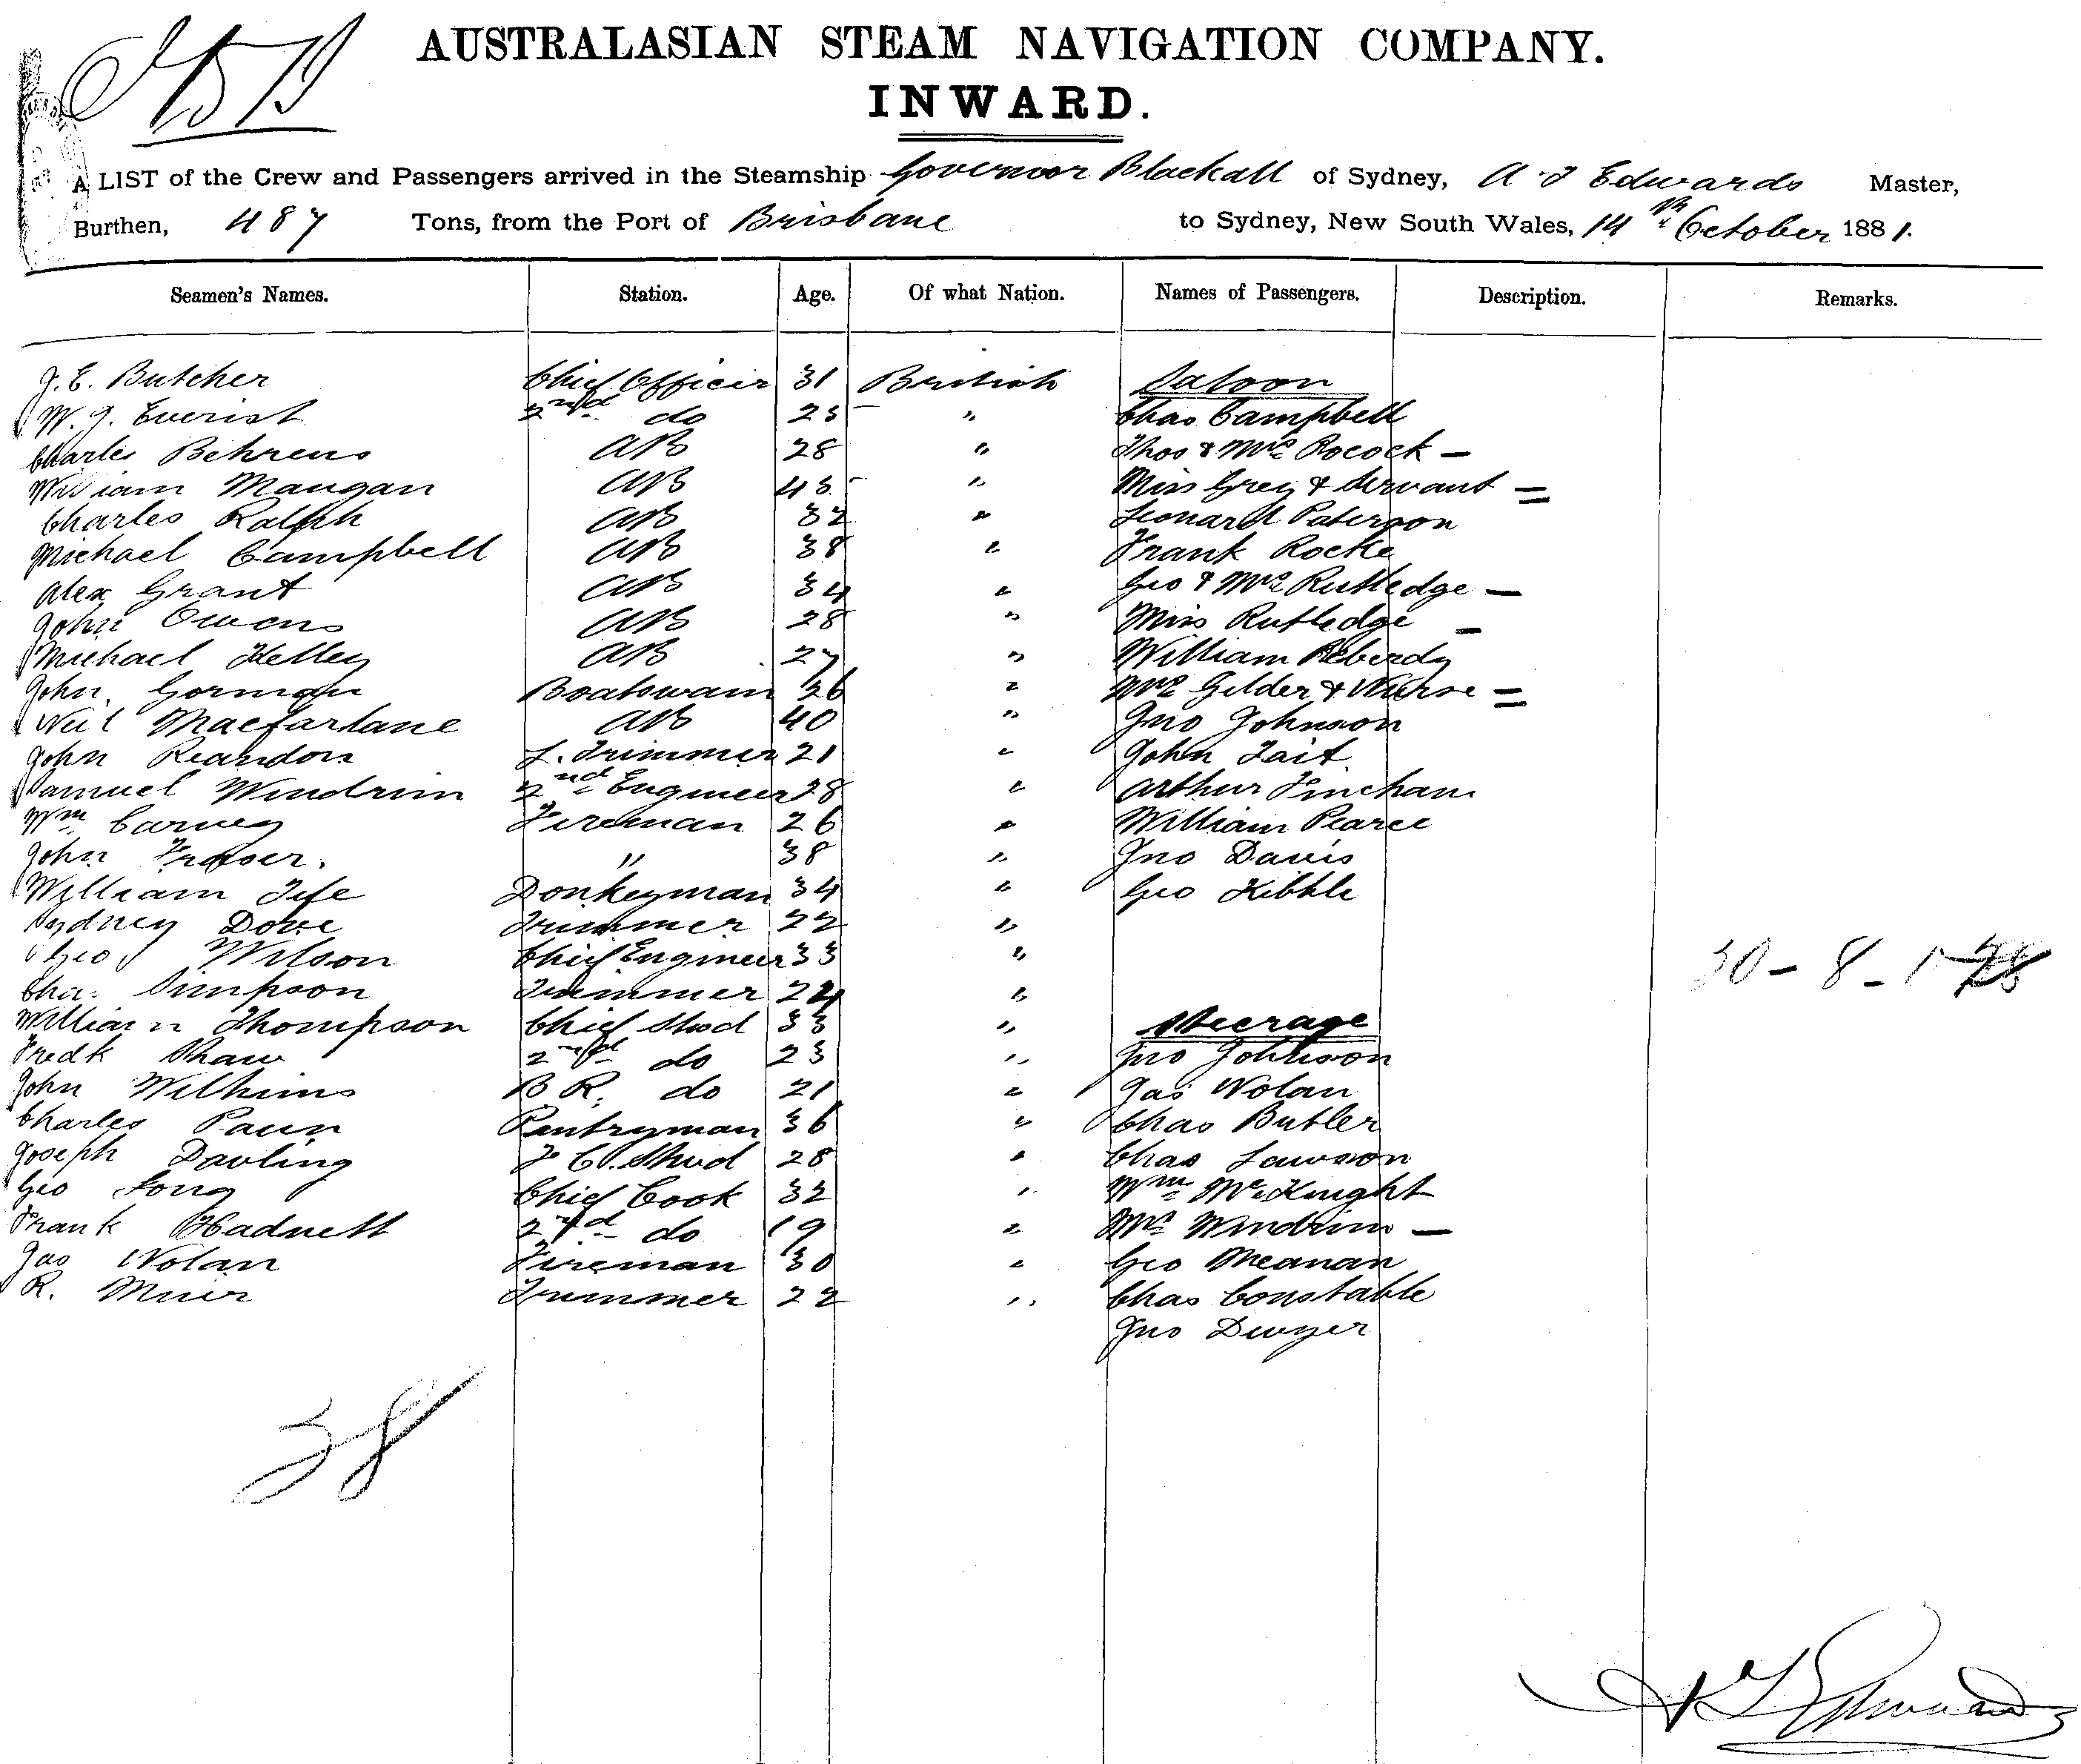 AUSTRALASIAN STEAM NAVIGATION COMPANY.
INWARD.
A LIST of the Crew and Passengers arrived in the Steamship Governor Blackall of Sydney, A J Edwards Master,
Burthen, 487 Tons, from the Port of Brisbane to Sydney, New South Wales, 14th October 1881.
Seamen's Names. Station. Age. Of what Nation. Names of Passengers. Description. Remarks.
J. E. Butcher Chief Officer 31 British Saloon
W. J. Everist 2nd do 25 " Chas Campbell
Charles Behrens AB 28 " Thos & Mrs Rocock —
William Mangan AB 45 " Miss Grey & Servant =
Charles Ralph AB 32 " Leonard Paterson
Michael Campbell AB 38 " Frank Rocke
Alex Grant AB 34 " Geo & Mrs Rutledge —
John Owens AB 28 " Miss Rutledge —
Michael Kelley AB 27 " William Reberdy
John Gorman Boatswain 26 " Mrs Gelder & Nurse =
Neil Macfarlane AB 40 " Jno Johnson
John Reardon L. Trimmer 21 " John Tait
Samuel Windrim 2nd Engineer 28 " Arthur Fincham
Wm Carney Fireman 26 " William Pearce
John Fraser. " 38 " Jno Davis
William Fife Donkeyman 34 " Geo Kibble
Sydney Dove Trimmer 22 "
Geo Wilson Chief Engineer 33 "
30 - 8 - 1
Chas. Simpson Trimmer 24 "
William Thompson Chief Stwd 33 " Steerage
Fredk Shaw 2nd do 23 " Jno Johnson
John Wilkins B. R. do 21 " Jas Nolan
Charles Paun Pantryman 36 " Chas Butler
Joseph Darling F. C. Stwd 28 " Chas Lawson
Geo Long Chief Cook 32 " Wm McKnight
Frank Hadnett 2nd do 19 " Mrs Windrim —
Jas Nolan Fireman 30 " Geo Meanan
R. Muir Trimmer 22 " Chas Constable
Jno Dwyer
38
A J Edwards